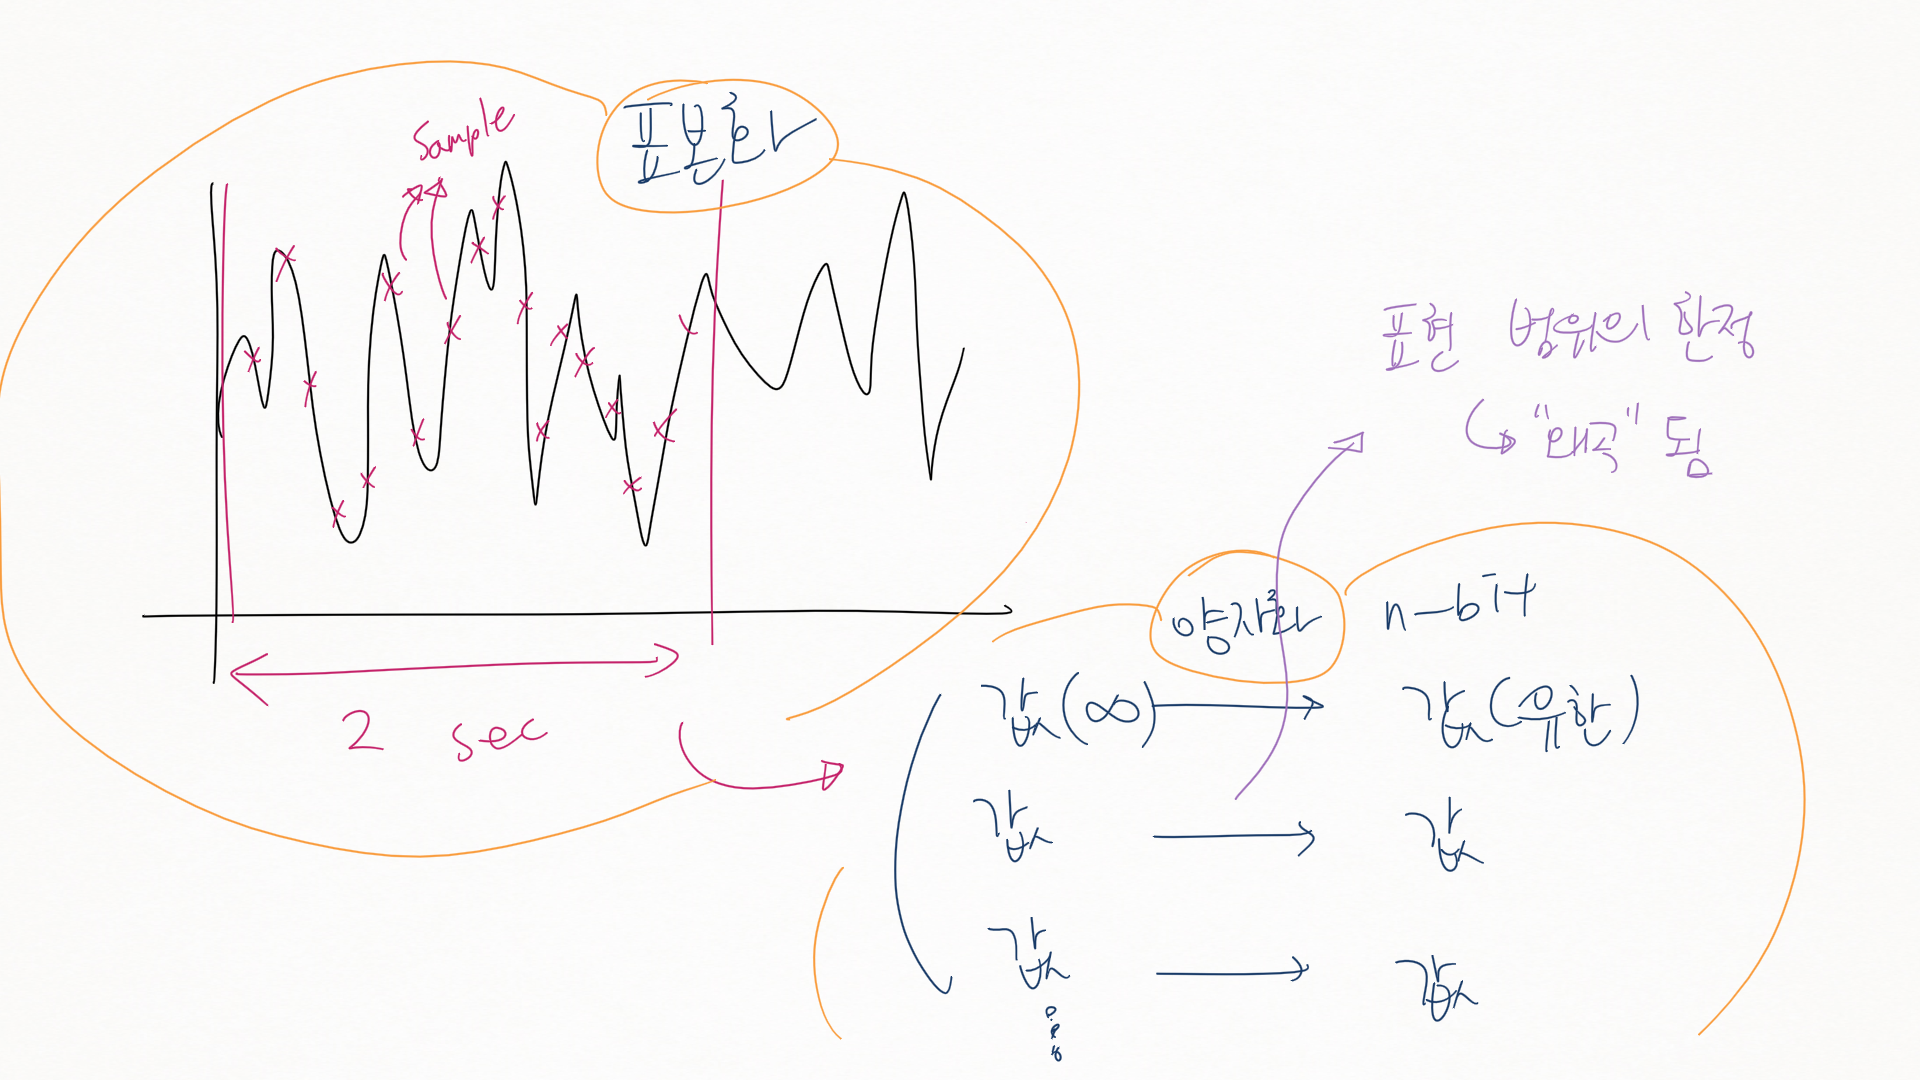 표본화
Sample
2 sec
표현 범위의 한정
"왜곡" 됨
양자화
n-bit
값(∞) → 값(유한)
값 → 값
값 → 값